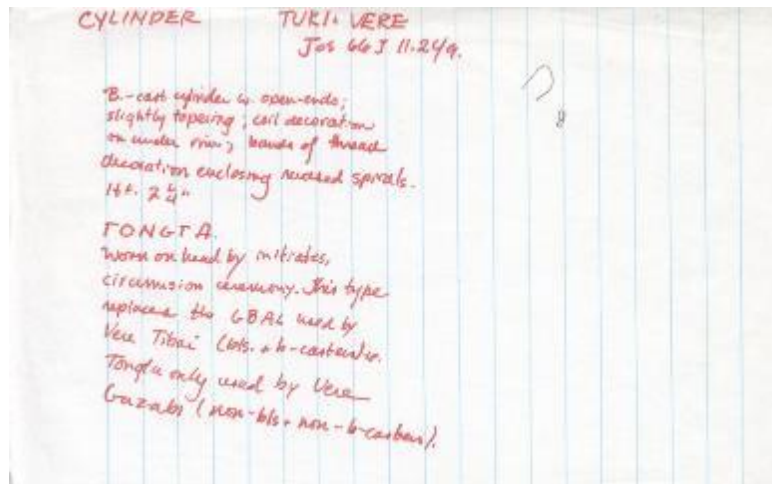 CYLINDER TUKI. VERE
Jos 66 J 11.24/9.
B.-cast cylinder w. open-ends;
slightly tapering; coil decoration
on under rim; bands of thread
decoration enclosing reversed spirals.
Ht. 2 1/4"
TONGTA.
Worn on head by initiates,
circumcision ceremony. This type
replaces the GBAL used by
Vere Tibai (bls. + b-casters)
Tongta only used by Vere
Gazabi (non-bls + non-b-casters).
8